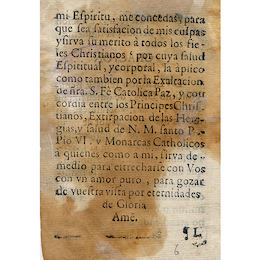 mi Espiritu, me concedas, para
que sea satisfacion de mis culpas
y sirva su merito à todos los fie-
les Christianos, por cuya salud
Espititual, y corporal, la aplico
como tambien por la Exaltacion
de ñra. S. Fè Catolica Paz, y con-
cordia entre los Principes Chris-
tianos, Extirpacion de las Here-
gias, y salud de N. M. santo P.
Pio VI. y Monarcas Catholicos
à quienes como a mi, sirva de
medio para estrecharse con Vos
con vn amor puro, para gozar
de vuestra vista por eternidades
de Gloria
Amè.
6